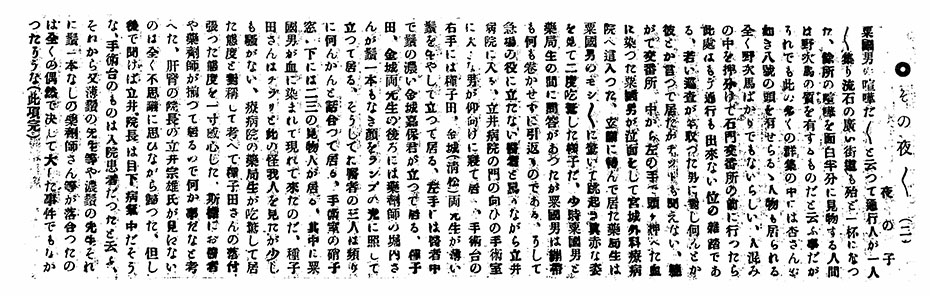 その夜(二)
夜の子
粟國男の喧嘩だ〱と云つて通行人が一人
〱集り流石の廣い街道も殆と一杯になつ
た、餘所の喧嘩を面白半分に見物する人間
は全く野次馬の質を有するのだと云ふ事だが
られでも此の多くの群集の中には杏さん
如き八號の頭を有せらる、人物も居られる
全く野次馬ばかりでもないらしいが、人混み
の中を押分けて石門交番所の前に行つたら
此處はもう通行も出来ない位の雑踏であ
る、若い巡査が取つた男に對し何んとか
彼とか言つて居たがチツトも聞えない、軈
がて交番所の中から左の手で頭を押へた血
に染つた粟國男が泣面をして宮城外科療病
院へ這入つた、玄關に轉んで居た薬局生は
粟國男のモシ〱に驚いて跳起き眞赤な姿
を見て二度吃驚した様子だ、少時粟國男と
薬局生の間に問答があつたが粟國男は繃帯
も何も巻かせずに引返つたのである、うして
急場の役に立たない醫者と罵りながら立井
病院に入つた、立井病院の門の向ひの手術室
に大い男が仰向けに寝て居る、手術台の
右手には種子田、金城(清松)両先生が薄い
鬚を生やして立つて居る、左手には醫者中
で鬚の濃い金城嘉保君が立つて居る、種子
田、金城両先生の後ろには薬劑師の堀内さ
んが鬚一本もなき顔をランプの光に照して
立つて居る、そうして醫者の三人は頻り
に何んかんと話合つて居る、手術室の硝子
窓の下には二三の見物人が居る、其中に粟
國男が血に染まれて現れて來たのだ、種子
田さんはチラリと此の怪我人を見たが少し
も騒がない、療病院の薬局生が吃驚して居
た態度と對稱して考へて種子田さんの落付
張つた態度を一寸感心した、斯様にお醫者
や薬劑師が揃つて居るので何か事だなと考
へた、肝腎の院長の立井宗雄氏が見えない
のは全く不思議に思ひながら歸つた。但し
後で聞けば立井院長は目下病氣中だそう
な、手術台のものは入院患者だつたと云ふ
それから又薄鬚の先生等や濃鬚の先生それ
に鬚一本なしの薬劑師さん等が落合つたの
は全くの偶然で決して大した事件でもなか
つたうな(此項完)